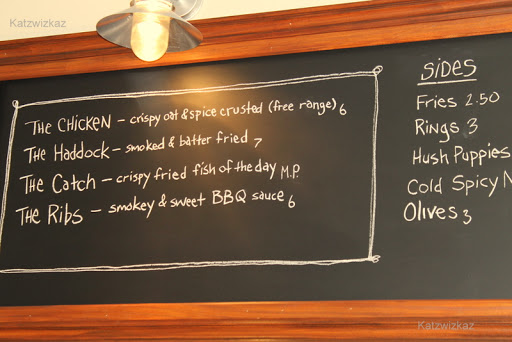 Katzwizkaz
The Chicken – crispy oat & spice crusted (free range) 6
The Haddock – smoked & batter fried 7
The Catch – crispy fried fish of the day M.P.
The Ribs – smokey & sweet BBQ sauce 6
SiDES
Fries 2.50
Rings 3
Hush Puppies
Cold Spicy N
Olives 3
Katzwizkaz